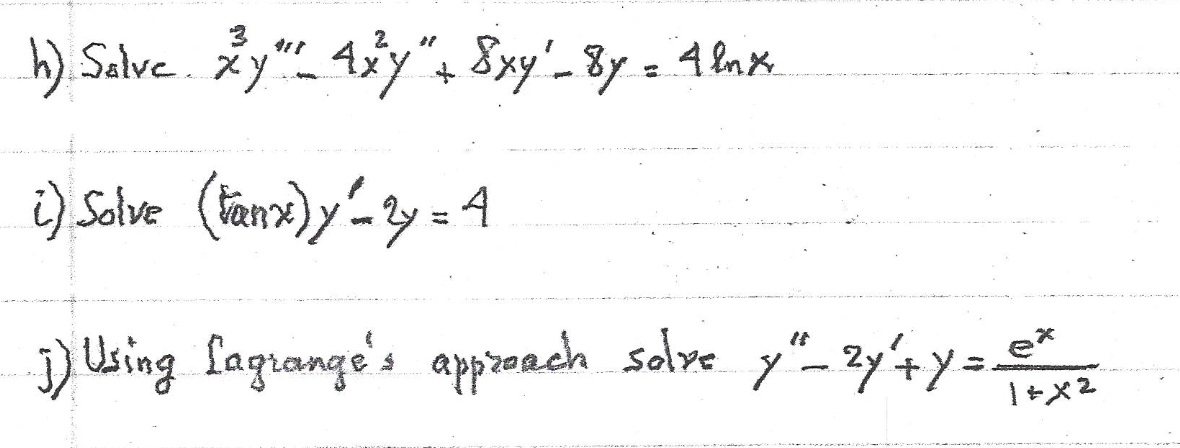 h) Solve. x³y''' - 4x²y'' + 8xy' - 8y = 4 ln x
i) Solve (tanx)y' - 2y = 4
j) Using Lagrange's approach solve y'' - 2y' + y = e^x / 1+x²